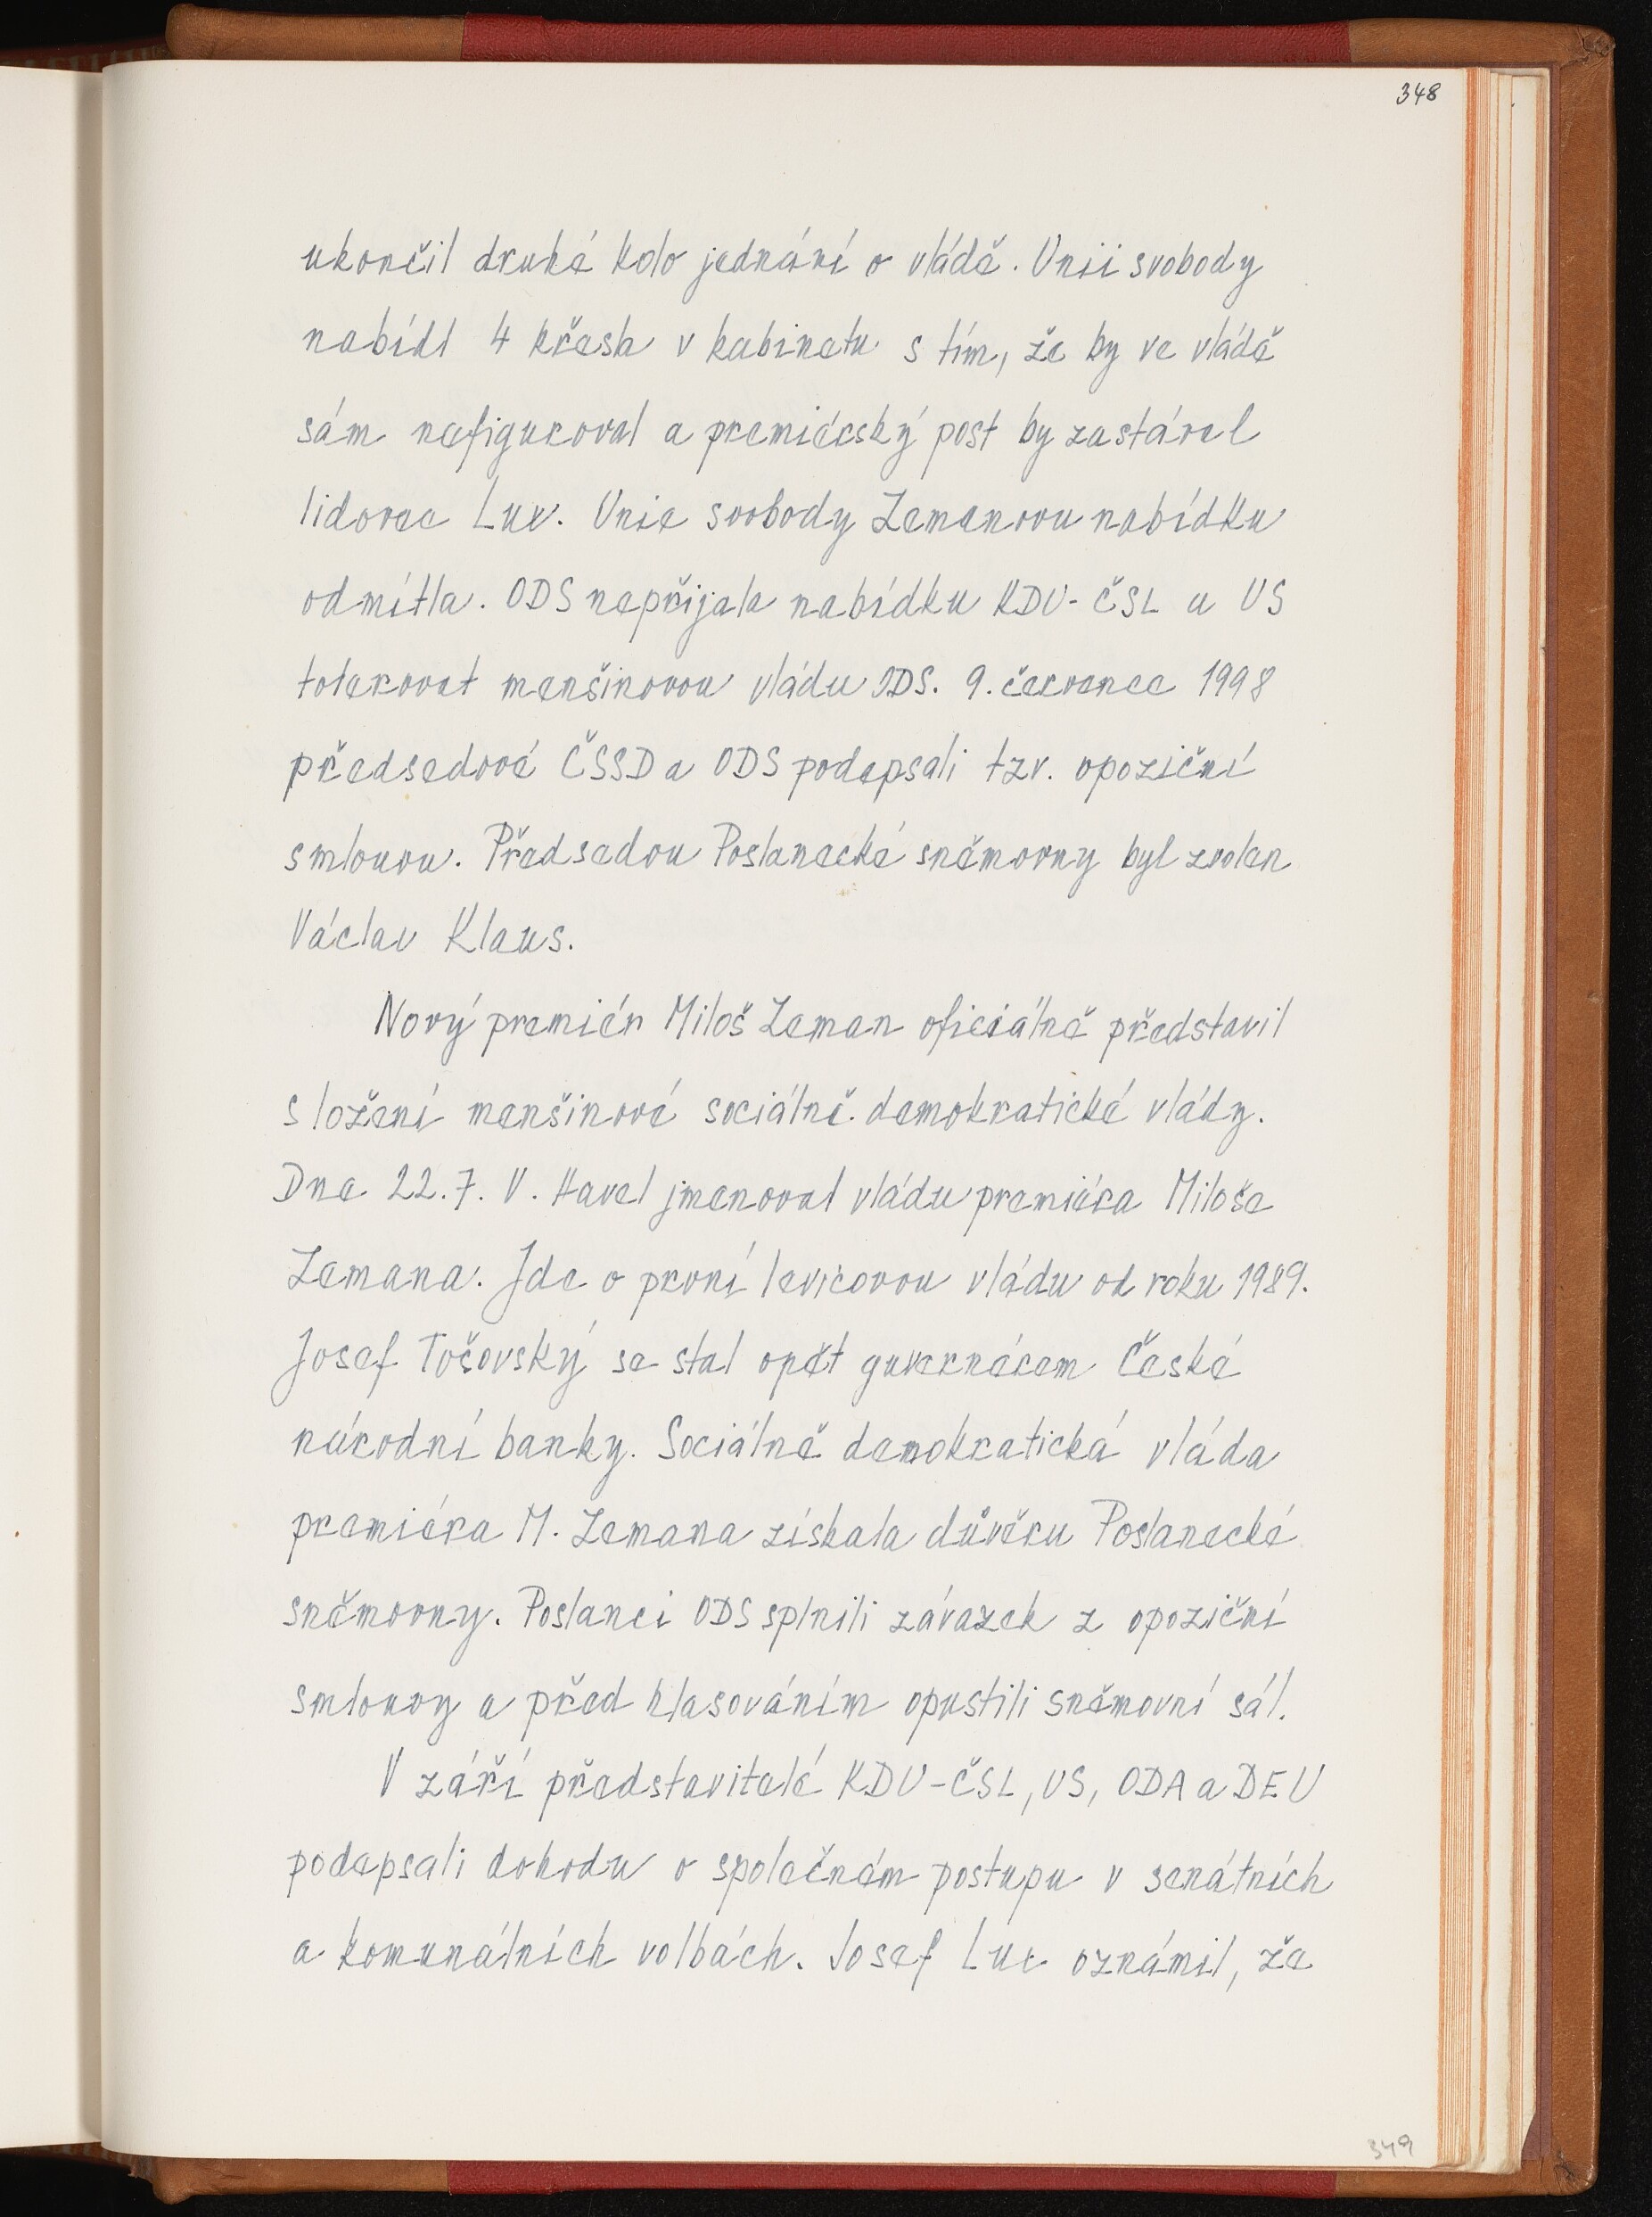 348
ukončil druhé kolo jednání o vládě. Unii svobody
nabídl 4 křesla v kabinetu s tím, že by ve vládě
sám nefiguroval a premiérský post by zastával
lidovec Lux. Unie svobody Zemanovu nabídku
odmítla. ODS nepřijala nabídku KDU-ČSL a US
tolerovat menšinovou vládu ODS. 9. července 1998
předsedové ČSSD a ODS podepsali tzv. opoziční
smlouvu. Předsedou Poslanecké sněmovny byl zvolen
Václav Klaus.
Nový premiér Miloš Zeman oficiálně představil
složení menšinové sociálně demokratické vlády.
Dne 22.7. V. Havel jmenoval vládu premiéra Miloše
Zemana. Jde o první levicovou vládu od roku 1989.
Josef Tošovský se stal opět guvernérem České
národní banky. Sociálně demokratická vláda
premiéra M. Zemana získala důvěru Poslanecké
sněmovny. Poslanci ODS splnili závazek z opoziční
smlouvy a před hlasováním opustili sněmovní sál.
V září představitelé KDU-ČSL, US, ODA a DEU
podepsali dohodu o společném postupu v senátních
a komunálních volbách. Josef Lux oznámil, že
349